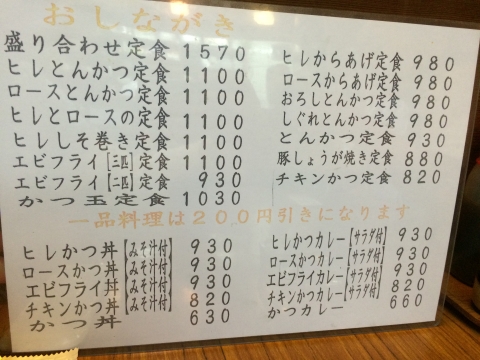 おしながき
盛り合わせ定食 1570
ヒレとんかつ定食 1100
ロースとんかつ定食 1100
ヒレとロースの定食 1100
ヒレしそ巻き定食 1100
エビフライ[三匹]定食 1100
エビフライ[二匹]定食 930
かつ玉定食 1030
ヒレからあげ定食 980
ロースからあげ定食 980
おろしとんかつ定食 980
しぐれとんかつ定食 980
とんかつ定食 930
豚しょうが焼き定食 880
チキンかつ定食 820
一品料理は200円引きになります
ヒレかつ丼【みそ汁付】 930
ロースかつ丼【みそ汁付】 930
エビフライ丼【みそ汁付】 930
チキンかつ丼【みそ汁付】 820
かつ丼 630
ヒレかつカレー【サラダ付】 930
ロースかつカレー【サラダ付】 930
エビフライカレー【サラダ付】 930
チキンかつカレー【サラダ付】 820
かつカレー 660